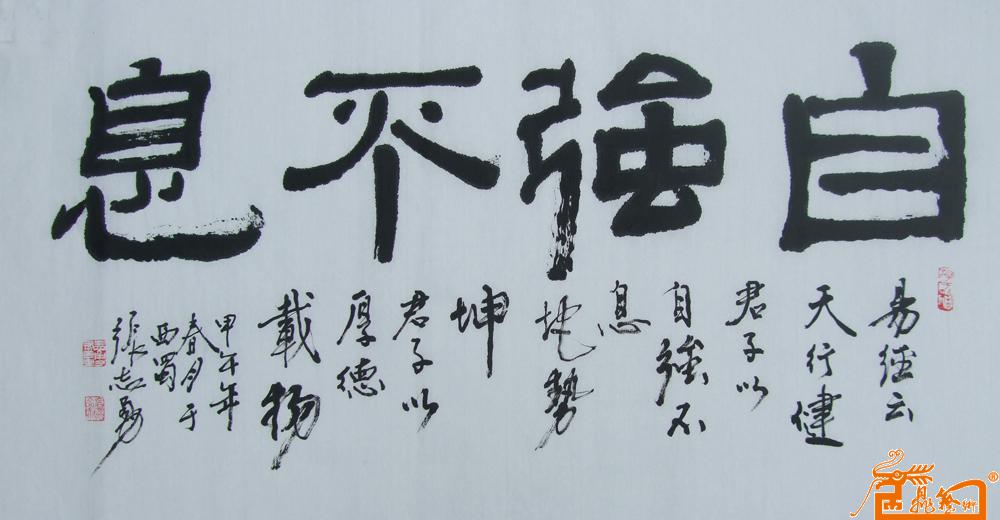 自強不息
易經云
天行健
君子以
自強不
息
地勢
坤
君子以
厚德
載物
甲午年
春月于
西蜀
張志勇